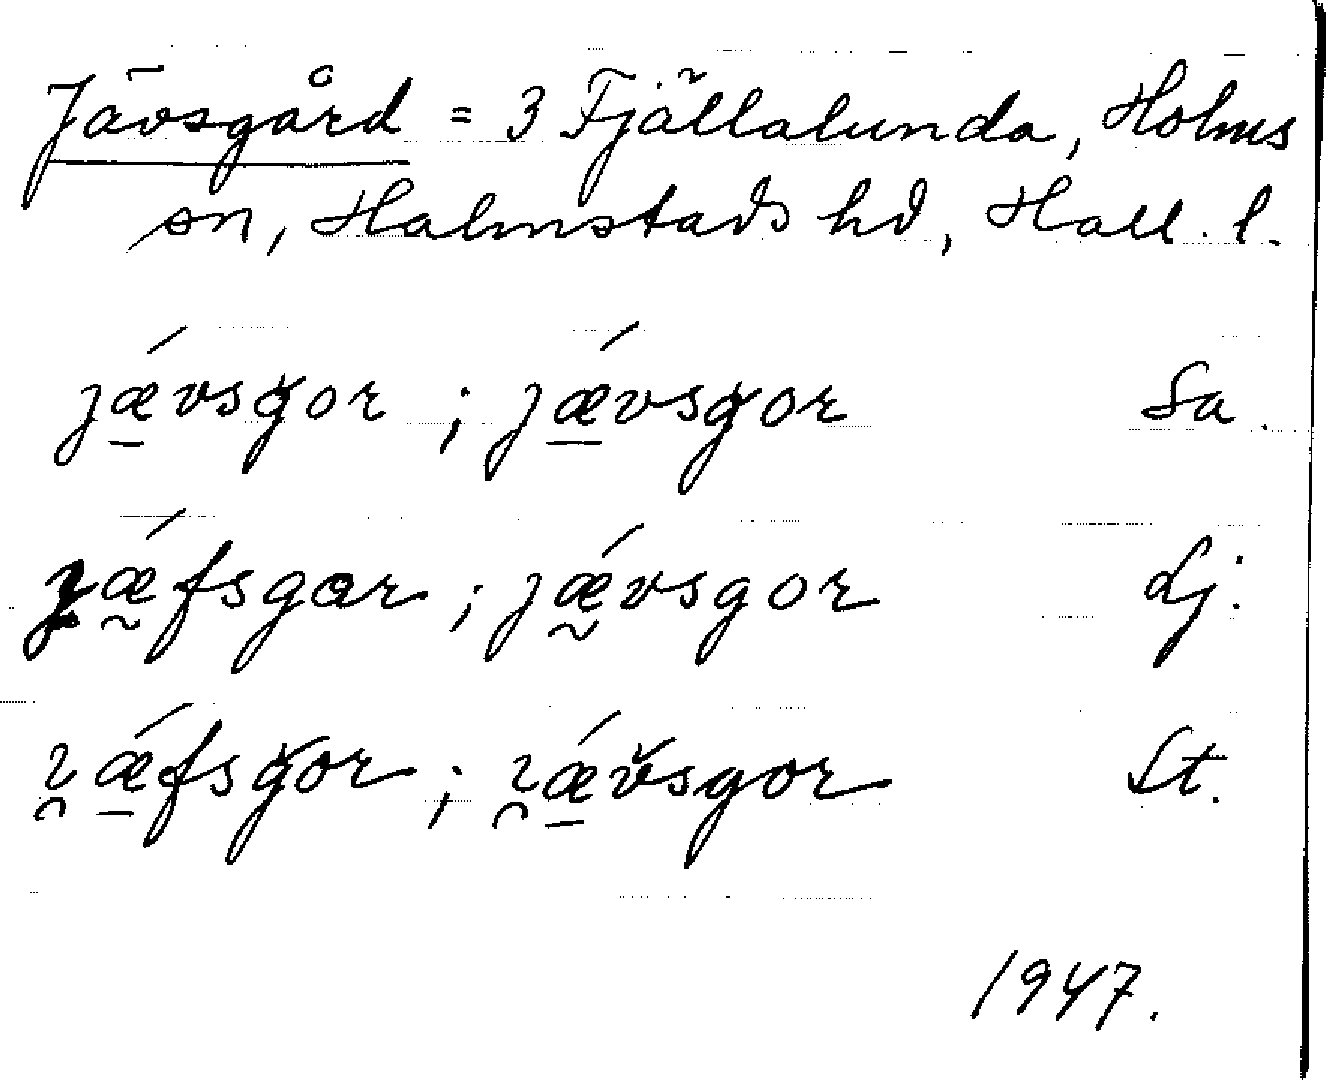 Jävsgård = 3 Fjällalunda, Holms
sn, Halmstads hd, Hall. l.
jǽ̱vsgor ; jǽ̱vsgor Sa.
jǽ̰fsgɑr ; jǽ̰vsgor Lj.
ɿ̯ǽ̱fsgor ; ɿ̯ǽ̱v̌sgor St.
1947.